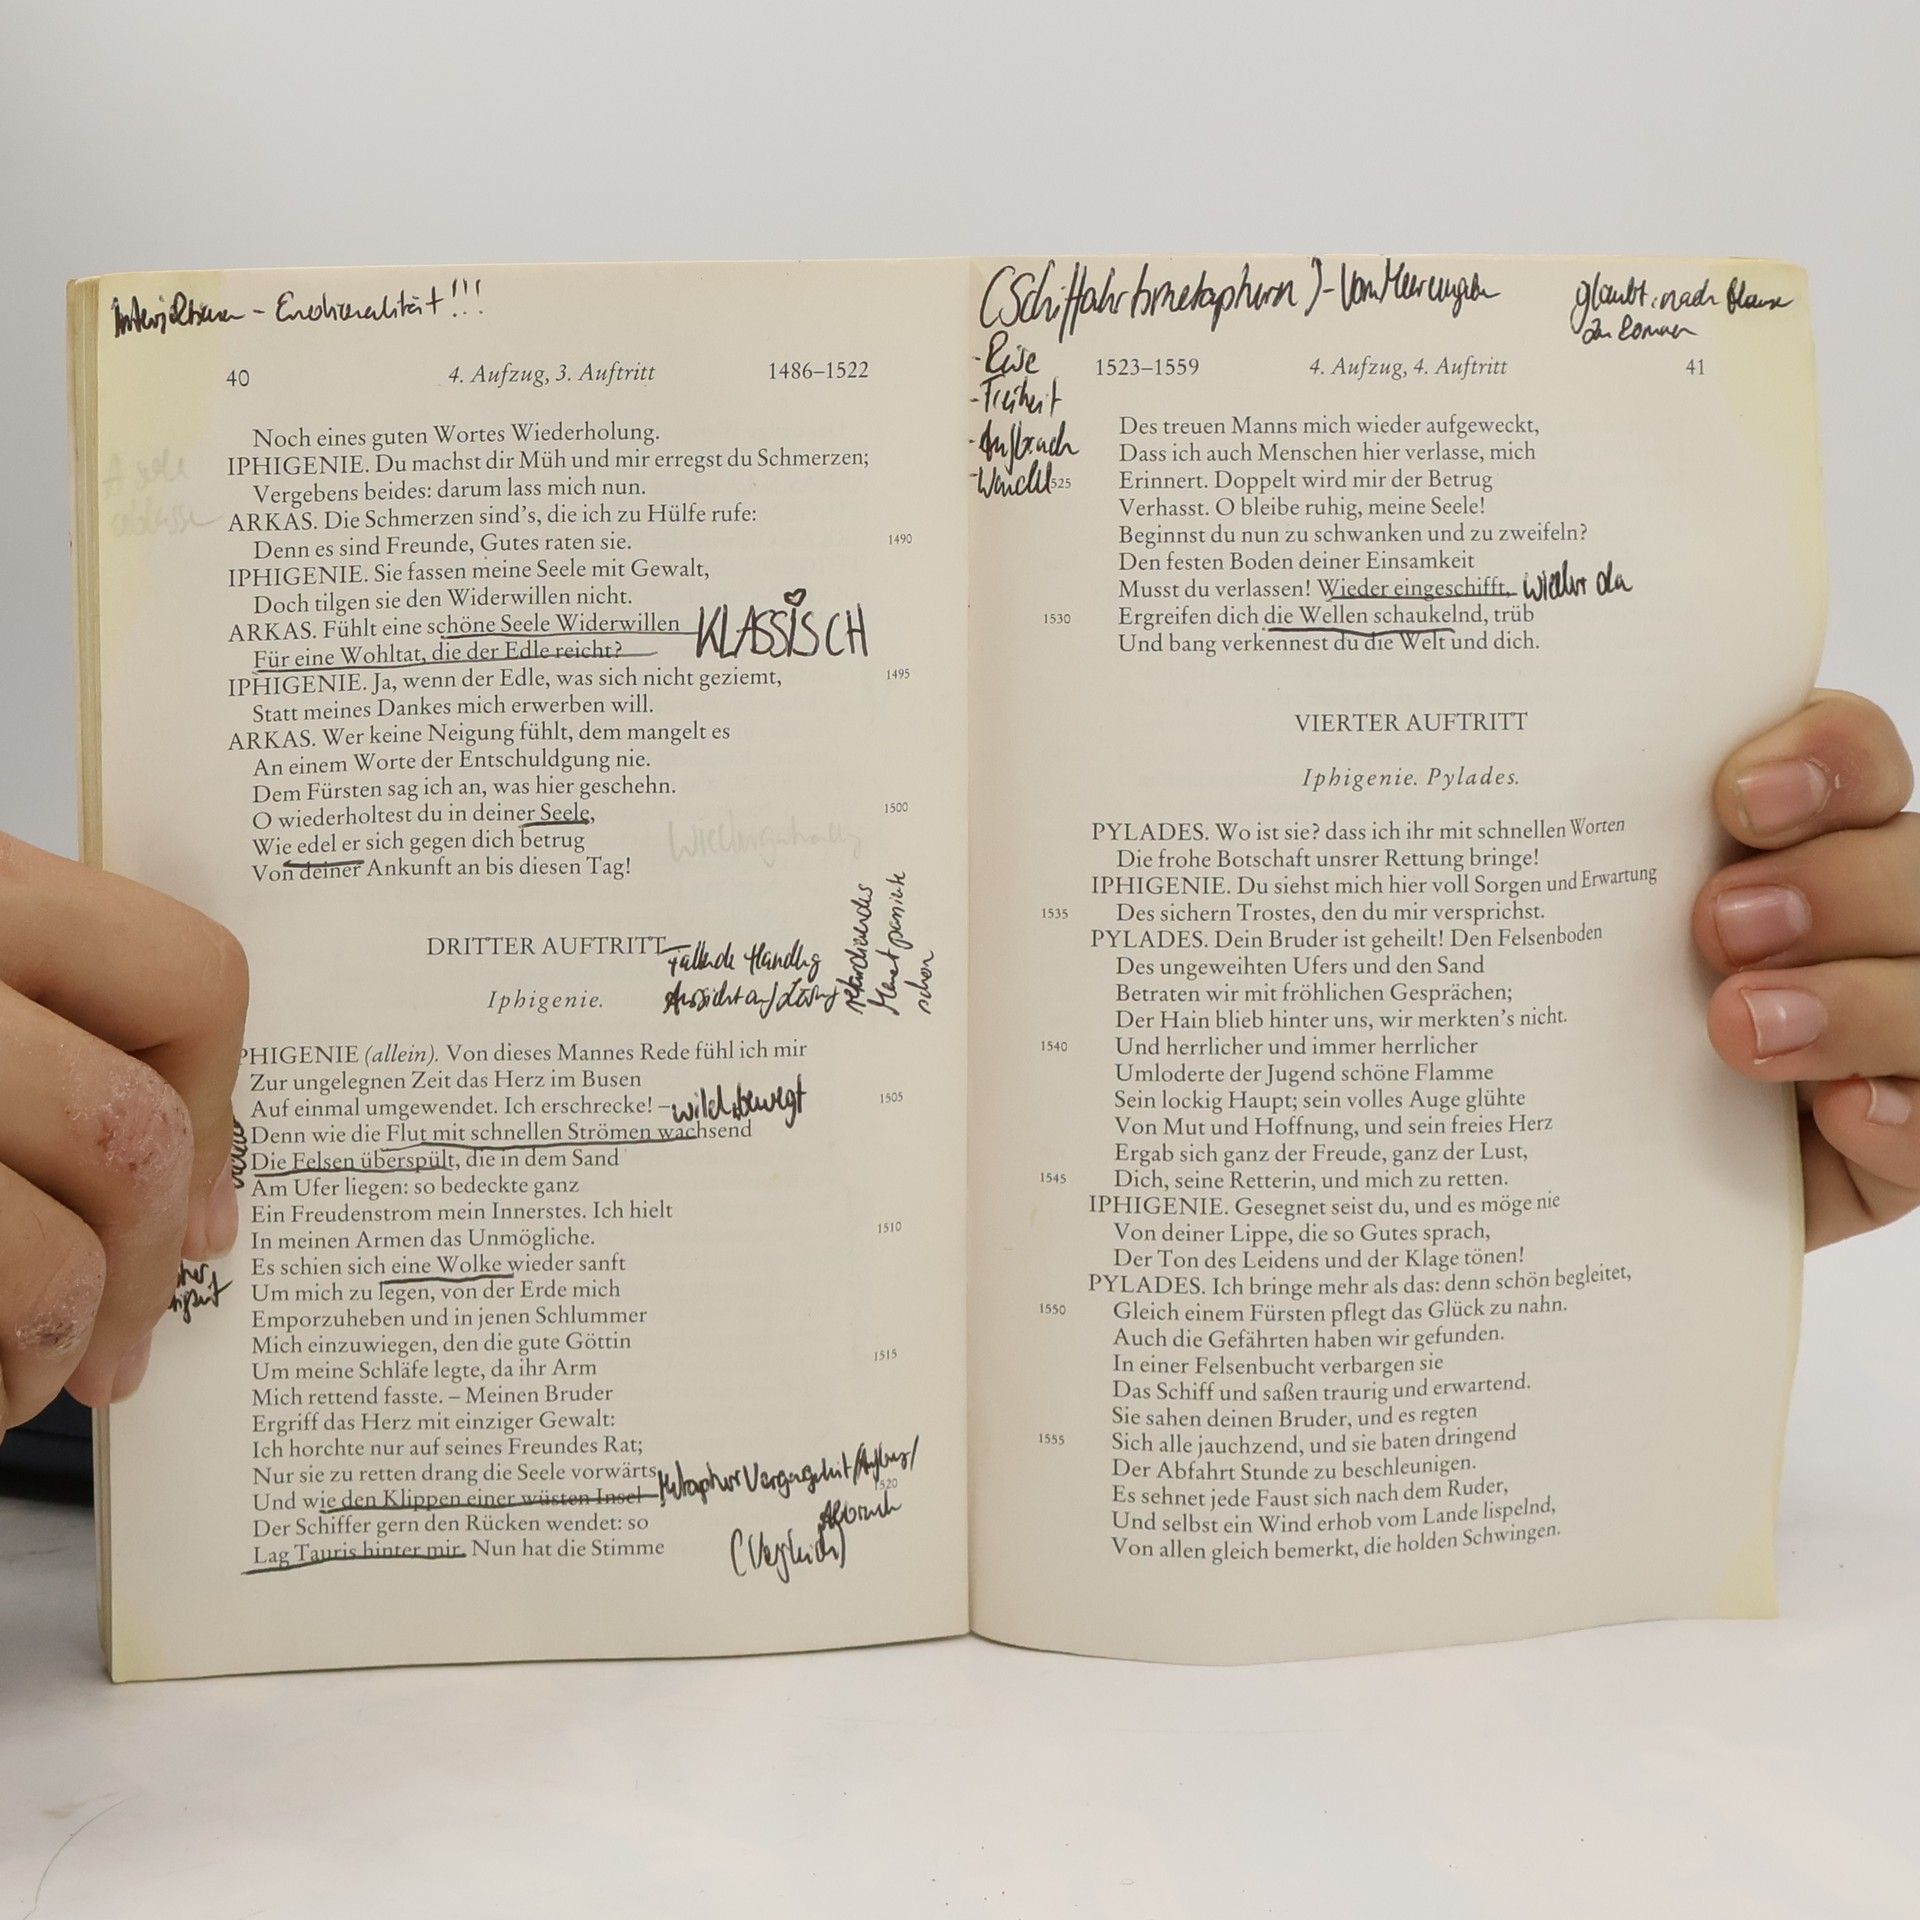 - Emotionalität!!!
40 4. Aufzug, 3. Auftritt 1486–1522
Noch eines guten Wortes Wiederholung.
IPHIGENIE. Du machst dir Müh und mir erregst du Schmerzen;
Vergebens beides: darum lass mich nun.
ARKAS. Die Schmerzen sind's, die ich zu Hülfe rufe:
Denn es sind Freunde, Gutes raten sie. 1490
IPHIGENIE. Sie fassen meine Seele mit Gewalt,
Doch tilgen sie den Widerwillen nicht.
ARKAS. Fühlt eine schöne Seele Widerwillen KLASSISCH
Für eine Wohltat, die der Edle reicht?
IPHIGENIE. Ja, wenn der Edle, was sich nicht geziemt, 1495
Statt meines Dankes mich erwerben will.
ARKAS. Wer keine Neigung fühlt, dem mangelt es
An einem Worte der Entschuldgung nie.
Dem Fürsten sag ich an, was hier geschehn.
O wiederholtest du in deiner Seele, 1500
Wie edel er sich gegen dich betrug
Von deiner Ankunft an bis diesen Tag!
DRITTER AUFTRITT
Fallende Handlg
Iphigenie.
Aussicht auf Lösung
retardierendes
Moment
schon
PHIGENIE (allein). Von dieses Mannes Rede fühl ich mir
Zur ungelegnen Zeit das Herz im Busen
Auf einmal umgewendet. Ich erschrecke! – wild, bewegt 1505
Denn wie die Flut mit schnellen Strömen wachsend
Die Felsen überspült, die in dem Sand
Am Ufer liegen: so bedeckte ganz
Ein Freudenstrom mein Innerstes. Ich hielt
In meinen Armen das Unmögliche. 1510
Es schien sich eine Wolke wieder sanft
Um mich zu legen, von der Erde mich
Emporzuheben und in jenen Schlummer
Mich einzuwiegen, den die gute Göttin
Um meine Schläfe legte, da ihr Arm 1515
Mich rettend fasste. – Meinen Bruder
Ergriff das Herz mit einziger Gewalt:
Ich horchte nur auf seines Freundes Rat;
Nur sie zu retten drang die Seele vorwärts.
Metapher Vergangenheit/
Und wie den Klippen einer wüsten Insel 1520
Der Schiffer gern den Rücken wendet: so
Abbruch
Lag Tauris hinter mir. Nun hat die Stimme
(Vergleich)
(Schiffahrtsmetaphern) -
glaubt, nach Hause
zu kommen
- Reise
- Freiheit
- Aufbruch
- Wandel
1523–1559 4. Aufzug, 4. Auftritt 41
Des treuen Manns mich wieder aufgeweckt,
Dass ich auch Menschen hier verlasse, mich
525 Erinnert. Doppelt wird mir der Betrug
Verhasst. O bleibe ruhig, meine Seele!
Beginnst du nun zu schwanken und zu zweifeln?
Den festen Boden deiner Einsamkeit
Musst du verlassen! Wieder eingeschifft, wieder da
1530 Ergreifen dich die Wellen schaukelnd, trüb
Und bang verkennest du die Welt und dich.
VIERTER AUFTRITT
Iphigenie. Pylades.
PYLADES. Wo ist sie? dass ich ihr mit schnellen Worten
Die frohe Botschaft unsrer Rettung bringe!
IPHIGENIE. Du siehst mich hier voll Sorgen und Erwartung
1535 Des sichern Trostes, den du mir versprichst.
PYLADES. Dein Bruder ist geheilt! Den Felsenboden
Des ungeweihten Ufers und den Sand
Betraten wir mit fröhlichen Gesprächen;
Der Hain blieb hinter uns, wir merkten's nicht.
1540 Und herrlicher und immer herrlicher
Umloderte der Jugend schöne Flamme
Sein lockig Haupt; sein volles Auge glühte
Von Mut und Hoffnung, und sein freies Herz
Ergab sich ganz der Freude, ganz der Lust,
1545 Dich, seine Retterin, und mich zu retten.
IPHIGENIE. Gesegnet seist du, und es möge nie
Von deiner Lippe, die so Gutes sprach,
Der Ton des Leidens und der Klage tönen!
PYLADES. Ich bringe mehr als das: denn schön begleitet,
1550 Gleich einem Fürsten pflegt das Glück zu nahn.
Auch die Gefährten haben wir gefunden.
In einer Felsenbucht verbargen sie
Das Schiff und saßen traurig und erwartend.
Sie sahen deinen Bruder, und es regten
1555 Sich alle jauchzend, und sie baten dringend
Der Abfahrt Stunde zu beschleunigen.
Es sehnet jede Faust sich nach dem Ruder,
Und selbst ein Wind erhob vom Lande lispelnd,
Von allen gleich bemerkt, die holden Schwingen.